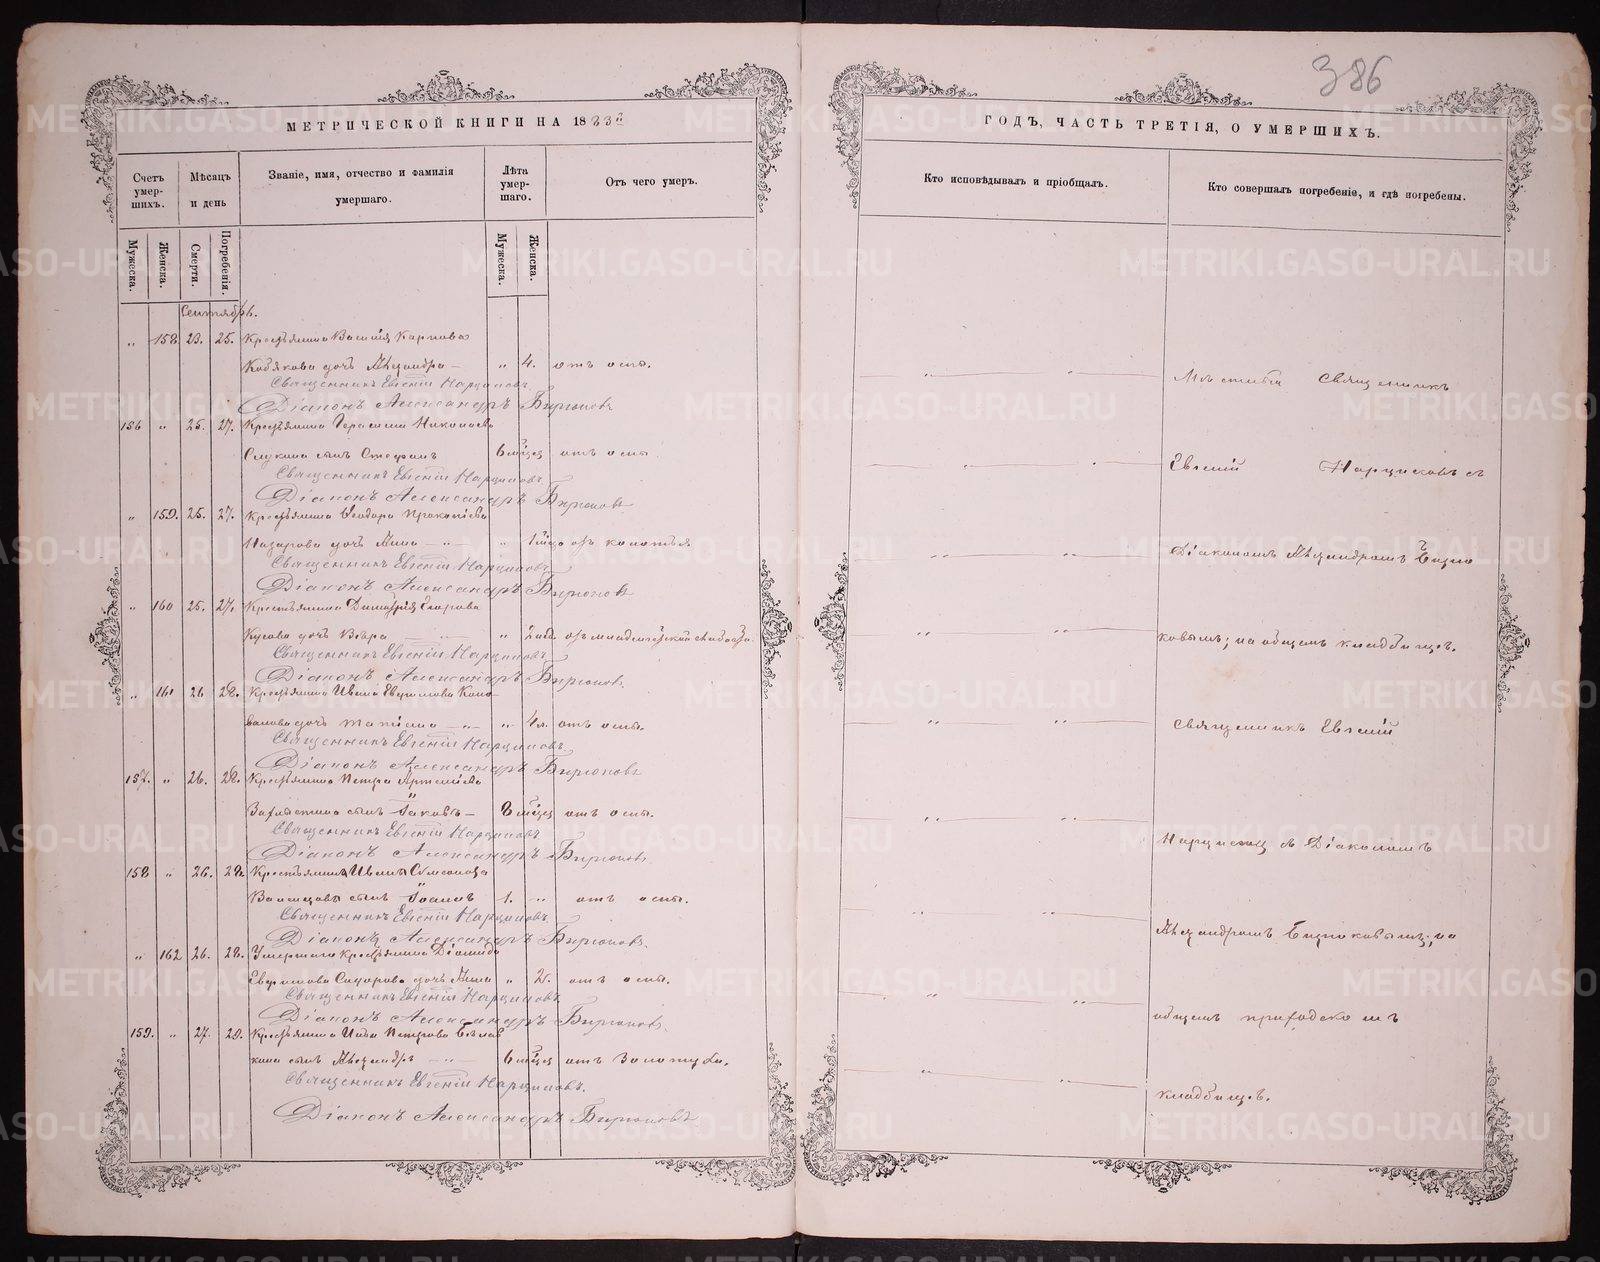 386
МЕТРИЧЕСКОЙ КНИГИ НА 1883 й
ГОДЪ, ЧАСТЬ ТРЕТІЯ, О УМЕРШИХЪ.
Счетъ умер-шихъ.
Мѣсяцъ и день
Званіе, имя, отчество и фамилія умершаго.
Лѣта умер-шаго.
Отъ чего умеръ.
Кто исповѣдывалъ и пріобщалъ.
Кто совершалъ погребеніе, и гдѣ погребены.
Мужеска.
Женска.
Смерти.
Погребенія.
Мужеска.
Женска.
Сентябрь.
„ 158 23. 25. Крестьянина Василія Карпова
Кобякова дочь Александра — „ 4. отъ оспы.
Священникъ Евгеній Нарциссовъ
Діаконъ Александръ Бирюковъ
156 „ 25. 27. Крестьянина Герасима Николаева
сынъ Стефанъ 6 мѣсяц отъ оспы
Священникъ Евгеній Нарциссовъ
Діаконъ Александръ Бирюковъ
„ 159. 25. 27. Крестьянина Ѳеодора Прокопіева
Назарова дочь Анна „ 1 отъ колотья
Священникъ Евгеній Нарциссовъ
Діаконъ Александръ Бирюковъ
„ 160 25. 27. Крестьянина Димитрія Егорова
Кусова дочь Вѣра „ 2 отъ младенческой слабости.
Священникъ Евгеній Нарциссовъ
Діаконъ Александръ Бирюковъ.
„ 161 26 28. Крестьянина Ивана Евфимова Коно-
валова дочь Татіана „ 4 л. отъ оспы.
Священникъ Евгеній Нарциссовъ.
Діаконъ Александръ Бирюковъ
157. „ 26. 28. Крестьянина Петра Артеміева
сынъ Іаковъ — 8 мѣсяц отъ оспы.
Священникъ Евгеній Нарциссовъ
Діаконъ Александръ Бирюковъ.
158 „ 26. 28. Крестьянина Ивана Симеонова
сынъ Іоаннъ 1. „ отъ оспы.
Священникъ Евгеній Нарциссовъ.
Діаконъ Александръ Бирюковъ.
„ 162 26. 28. Умершаго крестьянина Діомида
Евфимова Сидорова дочь Анна „ 2. отъ оспы.
Священникъ Евгеній Нарциссовъ
Діаконъ Александръ Бирюковъ.
159. „ 27. 29. Крестьянина Ивана Петрова
кина сынъ Александръ 6 мѣсяц отъ золотухи.
Священникъ Евгеній Нарциссовъ.
Діаконъ Александръ Бирюковъ
Мѣстный Священникъ
Евгеній Нарциссовъ съ
Діакономъ Александромъ Бирю
ковымъ; на общемъ кладбищѣ.
Священникъ Евгеній
Нарциссовъ съ Діакономъ
Александромъ Бирюковымъ; на
общемъ приходскомъ
кладбищѣ.
METRIKI.GASO-URAL.RU